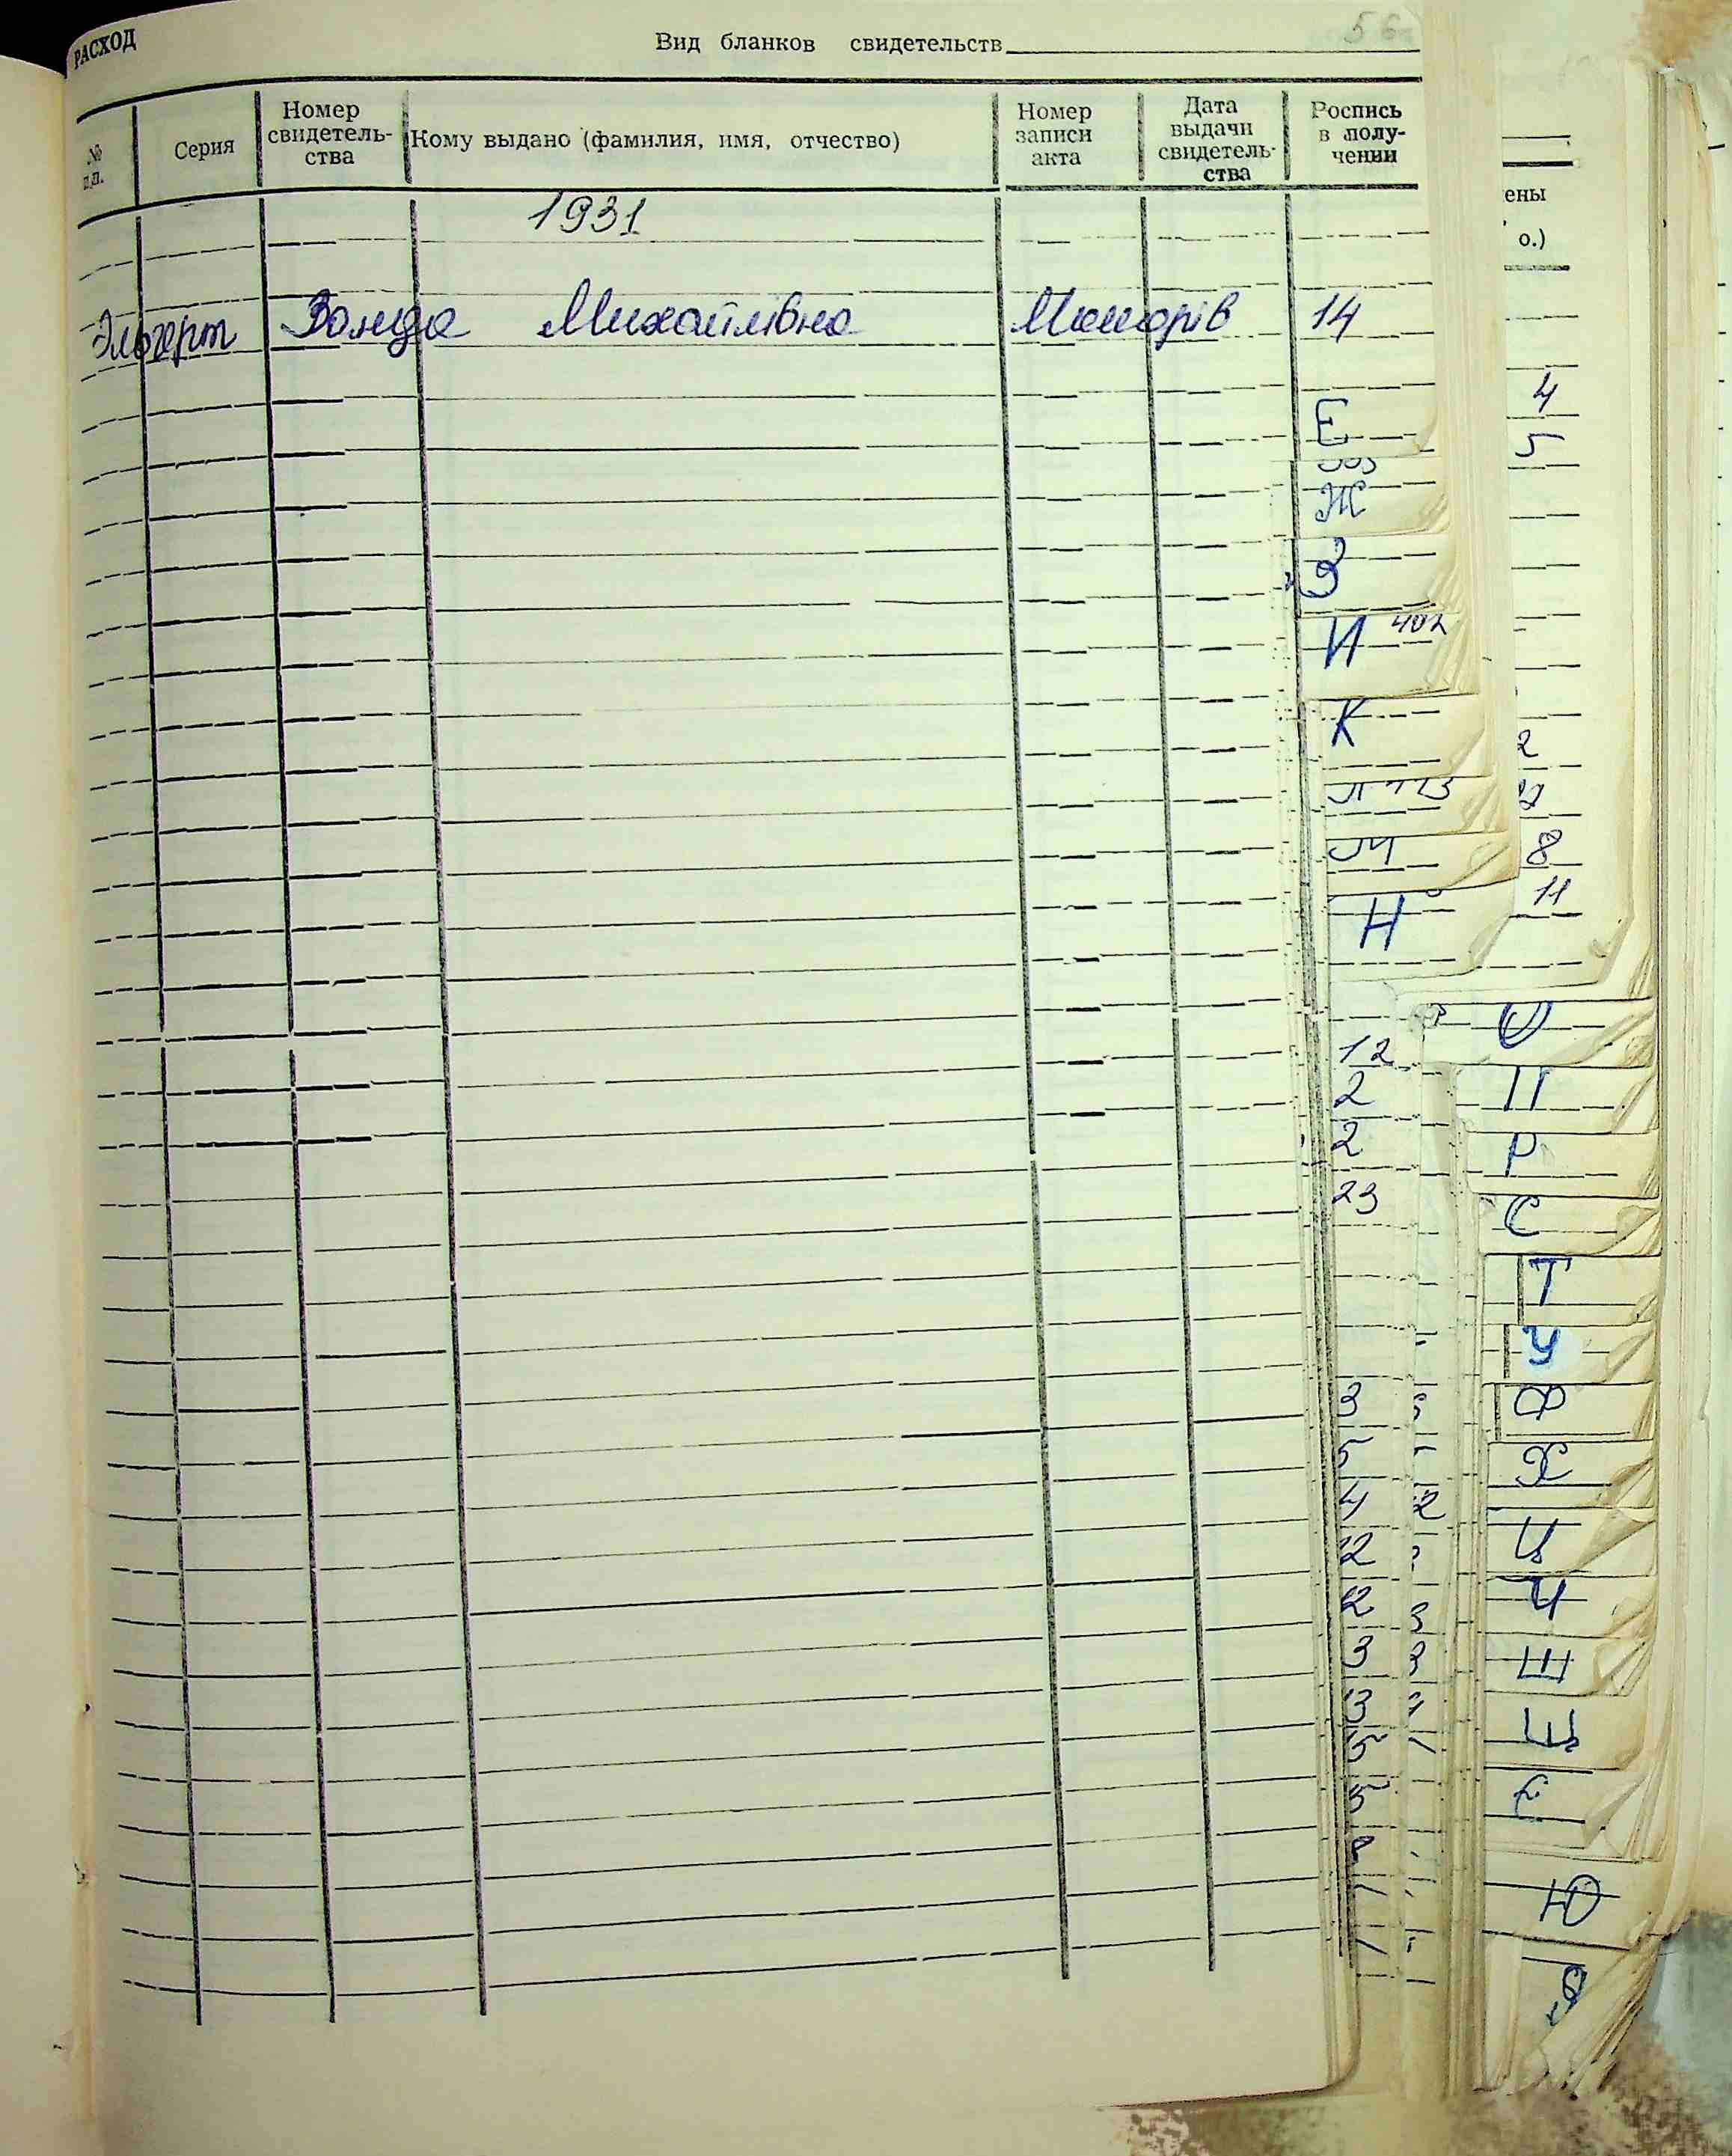 РАСХОД
Вид бланков свидетельств
56
№ п.п.
Серия
Номер свидетель-ства
Кому выдано (фамилия, имя, отчество)
Номер записи акта
Дата выдачи свидетель-ства
Роспись в полу-чении
1931
Михайлівна 14
ены
о.)
4
5
Е
Ж
З
И 402
К
2
М
8
11
Н
О
12
2
П
2
Р
23
С
Т
У
3
Ф
5
Х
4 2
Ц
12
Ч
2 3
Ш
3 3
Щ
3
5
Э
5
Ю
Я